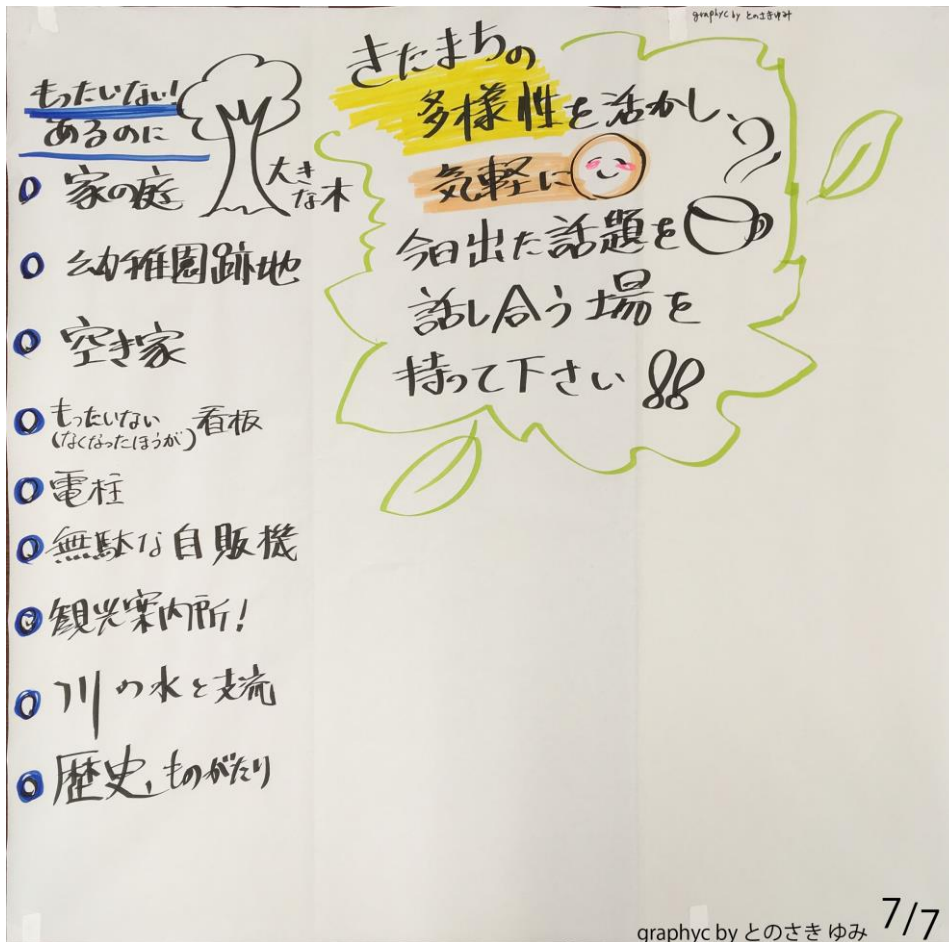 graphyc by とのさきゆみ
もったいない!
あるのに
大き
な木
家の庭
幼稚園跡地
空き家
もったいない
(なくなったほうが)看板
電柱
無駄な自販機
観光案内所!
川の水と支流
歴史,ものがたり
きたまちの
多様性を活かし、
気軽に
今日出た話題を
話し合う場を
持って下さい!!
graphyc by とのさき ゆみ
7/7